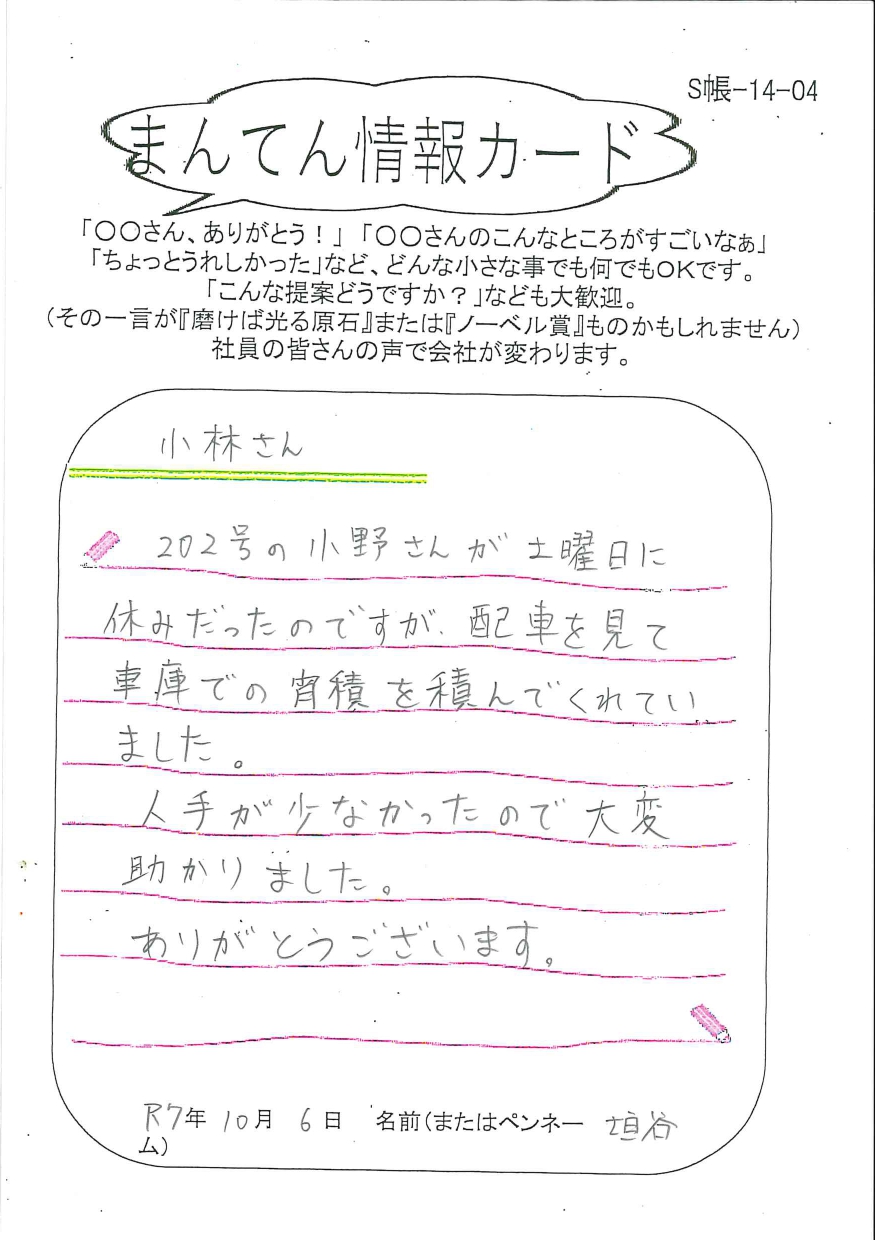 S帳-14-04
まんてん情報カード
「〇〇さん、ありがとう！」「〇〇さんのこんなところがすごいなぁ」
「ちょっとうれしかった」など、どんな小さな事でも何でもOKです。
「こんな提案どうですか？」なども大歓迎。
（その一言が『磨けば光る原石』または『ノーベル賞』ものかもしれません）
社員の皆さんの声で会社が変わります。
小林さん
202号の小野さんが土曜日に
休みだったのですが、配車を見て
車庫での宵積を積んでくれてい
ました。
人手が少なかったので大変
助かりました。
ありがとうございます。
R7年 10月 6日 名前（またはペンネー
ム） 垣谷